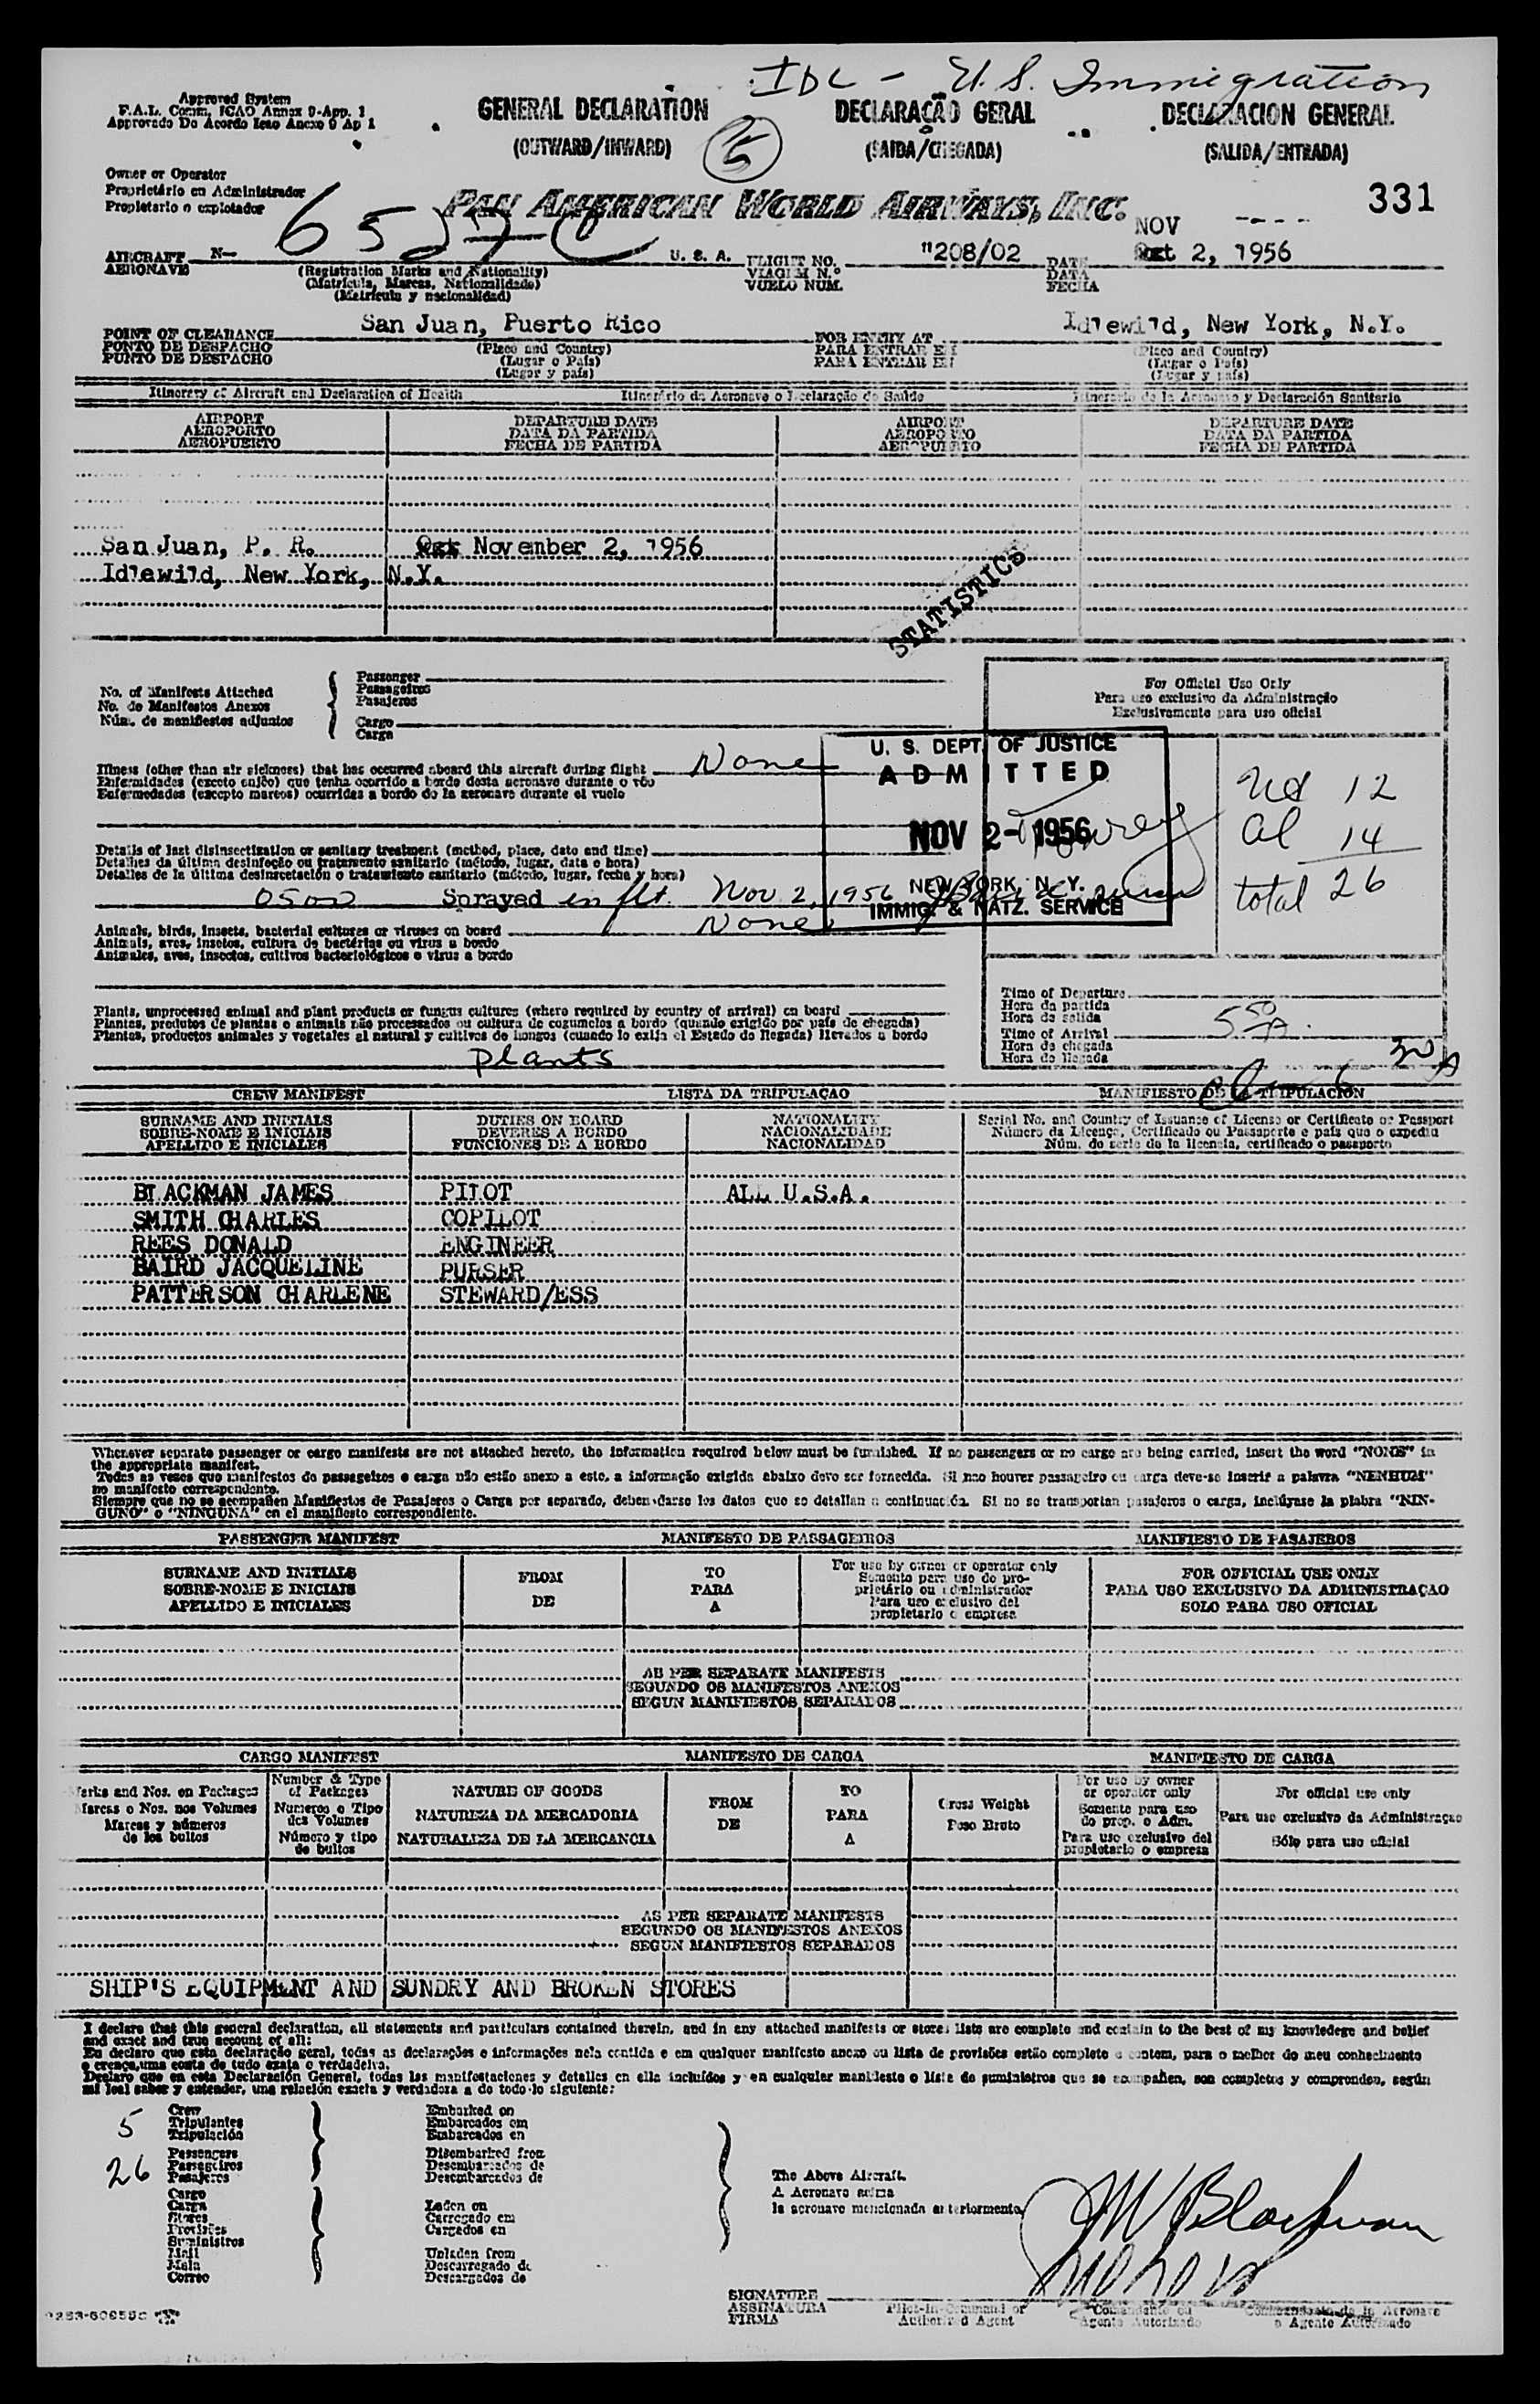 IDL - U.S. Immigration
Approved System
F.A.L. Comm. ICAO Annex 9-App. 1
Approvado Do Acordo Icao Anexo 9 Ap 1
GENERAL DECLARATION
(OUTWARD/INWARD)
5
DECLARAÇÃO GERAL
(SAIDA/CHEGADA)
DECLARACION GENERAL
(SALIDA/ENTRADA)
Owner or Operator
Proprietário en Administrador
Propietario o explotador
PAN AMERICAN WORLD AIRWAYS, INC.
331
NOV
AIRCRAFT N- U. S. A. FLIGHT NO. "208/02 DATE Oct 2, 1956
AERONAVE (Registration Marks and Nationality) VIAGEM N.º DATA
(Matricula, Marcas, Nationalidade) VUELO NUM. FECHA
(Matricula y nacionalidad)
POINT OF CLEARANCE San Juan, Puerto Rico FOR ENTRY AT Idlewild, New York, N.Y.
PONTO DE DESPACHO (Place and Country) PARA ENTRAR EM (Place and Country)
PUNTO DE DESPACHO (Lugar o País) PARA ENTRAR EN (Lugar o País)
(Lugar y país) (Lugar y país)
Itinerary of Aircraft and Declaration of Health Itinerário da Aeronave o Declaração de Saúde Itinerario de la Aeronave y Declaración Sanitaria
AIRPORT DEPARTURE DATE AIRPORT DEPARTURE DATE
AEROPORTO DATA DA PARTIDA AEROPORTO DATA DA PARTIDA
AEROPUERTO FECHA DE PARTIDA AEROPUERTO FECHA DE PARTIDA
San Juan, P. R. Oct November 2, 1956
Idlewild, New York, N.Y.
STATISTICS
No. of Manifests Attached
No. de Manifestos Anexos
Núm. de manifiestos adjuntos
Passenger
Passageiros
Pasajeros
Cargo
Carga
For Official Use Only
Para uso exclusivo da Administração
Exclusivamente para uso oficial
Illness (other than air sickness) that has occurred aboard this aircraft during flight None
Enfermidades (exceto enjôo) que tenha ocorrido a bordo desta aeronave durante o vôo
Enfermedades (excepto mareos) ocurridas a bordo de la aeronave durante el vuelo
U. S. DEPT. OF JUSTICE
ADMITTED
NOV 2- 1956
NEW YORK, N. Y.
IMMIG. & NATZ. SERVICE
12
al 14
total 26
Details of last disinsectization or sanitary treatment (method, place, date and time)
Detalhes da última desinfeção ou tratamento sanitario (método, lugar, data e hora)
Detalles de la última desinsectación o tratamiento sanitario (método, lugar, fecha y hora)
Sprayed in flt. Nov 2, 1956
Animals, birds, insects, bacterial cultures or viruses on board None
Animais, aves, insetos, cultura de bactérias ou virus a bordo
Animales, aves, insectos, cultivos bacteriológicos o virus a bordo
Plants, unprocessed animal and plant products or fungus cultures (where required by country of arrival) on board
Plantas, produtos de plantas o animais não processados ou cultura de cogumelos a bordo (quando exigido por país de chegada)
Plantas, productos animales y vegetales al natural y cultivos de hongos (cuando lo exija el Estado de llegada) llevados a bordo
plants
Time of Departure
Hora da partida
Hora de salida
Time of Arrival
Hora de chegada
Hora de llegada
CREW MANIFEST LISTA DA TRIPULAÇAO MANIFIESTO DE LA TRIPULACION
SURNAME AND INITIALS DUTIES ON BOARD NATIONALITY Serial No. and Country of Issuance of License or Certificate or Passport
SOBRE-NOME E INICIAIS DEVERES A BORDO NACIONALIDADE Número da Licença, Certificado ou Passaporte e país que o expediu
APELLIDO E INICIALES FUNCIONES DE A BORDO NACIONALIDAD Núm. de serie de la licencia, certificado o pasaporte
BLACKMAN JAMES PILOT ALL U.S.A.
SMITH CHARLES COPILOT
REES DONALD ENGINEER
BAIRD JACQUELINE PURSER
PATTERSON CHARLENE STEWARD/ESS
Whenever separate passenger or cargo manifests are not attached hereto, the information required below must be furnished. If no passengers or no cargo are being carried, insert the word "NONE" in
the appropriate manifest.
Todas as vezes que manifestos de passageiros e carga não estão anexo a este, a informação exigida abaixo deve ser fornecida. Si nao houver passageiro ou carga deve-se inserir a palavra "NENHUM"
no manifesto correspondente.
Siempre que no se acompañen Manifiestos de Pasajeros o Carga por separado, deben darse los datos que se detallan a continuación. Si no se transportan pasajeros o carga, inclúyase la plabra "NIN-
GUNO" o "NINGUNA" en el manifiesto correspondiente.
PASSENGER MANIFEST MANIFESTO DE PASSAGEIROS MANIFIESTO DE PASAJEROS
SURNAME AND INITIALS FROM TO For use by owner or operator only FOR OFFICIAL USE ONLY
SOBRE-NOME E INICIAIS DE PARA Somente para uso do pro- PARA USO EXCLUSIVO DA ADMINISTRAÇAO
APELLIDO E INICIALES A prietário ou administrador SOLO PARA USO OFICIAL
Para uso exclusivo del
propietario o empresa
AS PER SEPARATE MANIFESTS
SEGUNDO OS MANIFESTOS ANEXOS
SEGUN MANIFIESTOS SEPARADOS
CARGO MANIFEST MANIFESTO DE CARGA MANIFIESTO DE CARGA
Marks and Nos. on Packages Number & Type of Packages NATURE OF GOODS FROM TO Gross Weight For use by owner or operator only For official use only
Marcas o Nos. nos Volumes Numeros o Tipo dos Volumes NATUREZA DA MERCADORIA DE PARA Peso Bruto Somente para uso do prop. o Adm. Para uso exclusivo da Administraçao
Marcas y números de los bultos Número y tipo de bultos NATURALEZA DE LA MERCANCIA A Para uso exclusivo del propietario o empresa Sólo para uso oficial
AS PER SEPARATE MANIFESTS
SEGUNDO OS MANIFESTOS ANEXOS
SEGUN MANIFIESTOS SEPARADOS
SHIP'S EQUIPMENT AND SUNDRY AND BROKEN STORES
I declare that this general declaration, all statements and particulars contained therein, and in any attached manifests or stores lists are complete and contain to the best of my knowledege and belief
and exact and true account of all:
Eu declaro que esta declaração geral, todas as declarações e informações nela contida e em qualquer manifesto anexo ou lista de provisões estão completo e contem, para o melhor do meu conhecimento
e crença,uma conta de tudo exata e verdadeiva.
Declaro que en esta Declaración General, todas las manifestaciones y detalles en ella incluídos y en cualquier manifiesto o lista de suministros que se acompañen, son completos y comprenden, según
mi leal saber y entender, una relación exacta y verdadera a de todo lo siguiente:
5 Crew
Tripulantes
Tripulación
26 Passengers
Passageiros
Pasajeros
Cargo
Carga
Stores
Provisões
Suministros
Mail
Mala
Correo
Embarked on
Embarcados em
Embarcados en
Disembarked from
Desembarcados de
Desembarcados de
Laden on
Carregado em
Cargados en
Unladen from
Descarregado de
Descargados de
The Above Aircraft.
A Aeronave acima
la aeronave mencionada anteriormente
JW Blackman
SIGNATURE
ASSINATURA
FIRMA
Pilot-in-Command or
Authorized Agent
Comandante ou
Agente Autorizado
Comandante de la Aeronave
o Agente Autorizado